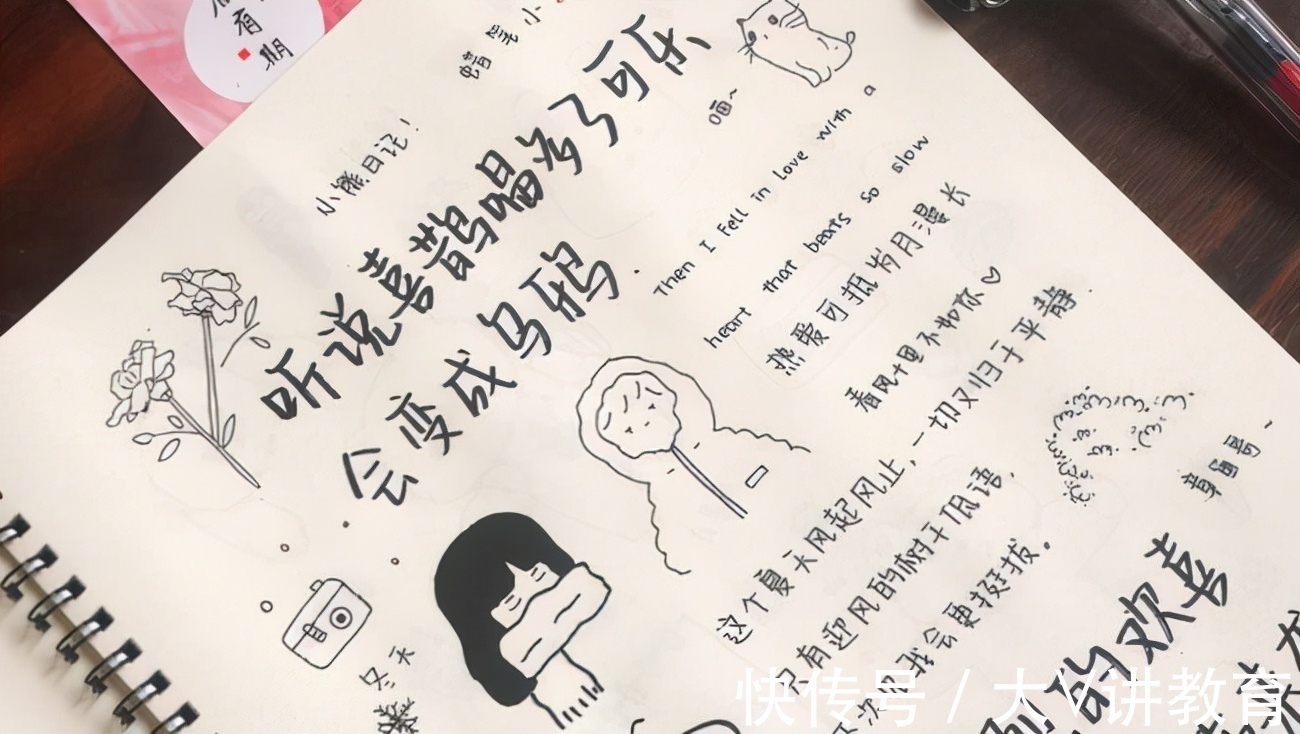 有
期
蜡笔小
小熊日记!
听说喜鹊唱多了可乐
会变成乌鸦.
喵~
Then I Fell in love with a
heart that beats so slow
热爱可抵岁月漫长
春风十里不如你♡
这个夏天风起风止,一切又归于平静.
只有迎风的树干低语,
次日我会更挺拔。
冬天
的欢喜
快传号 / 大V讲教育